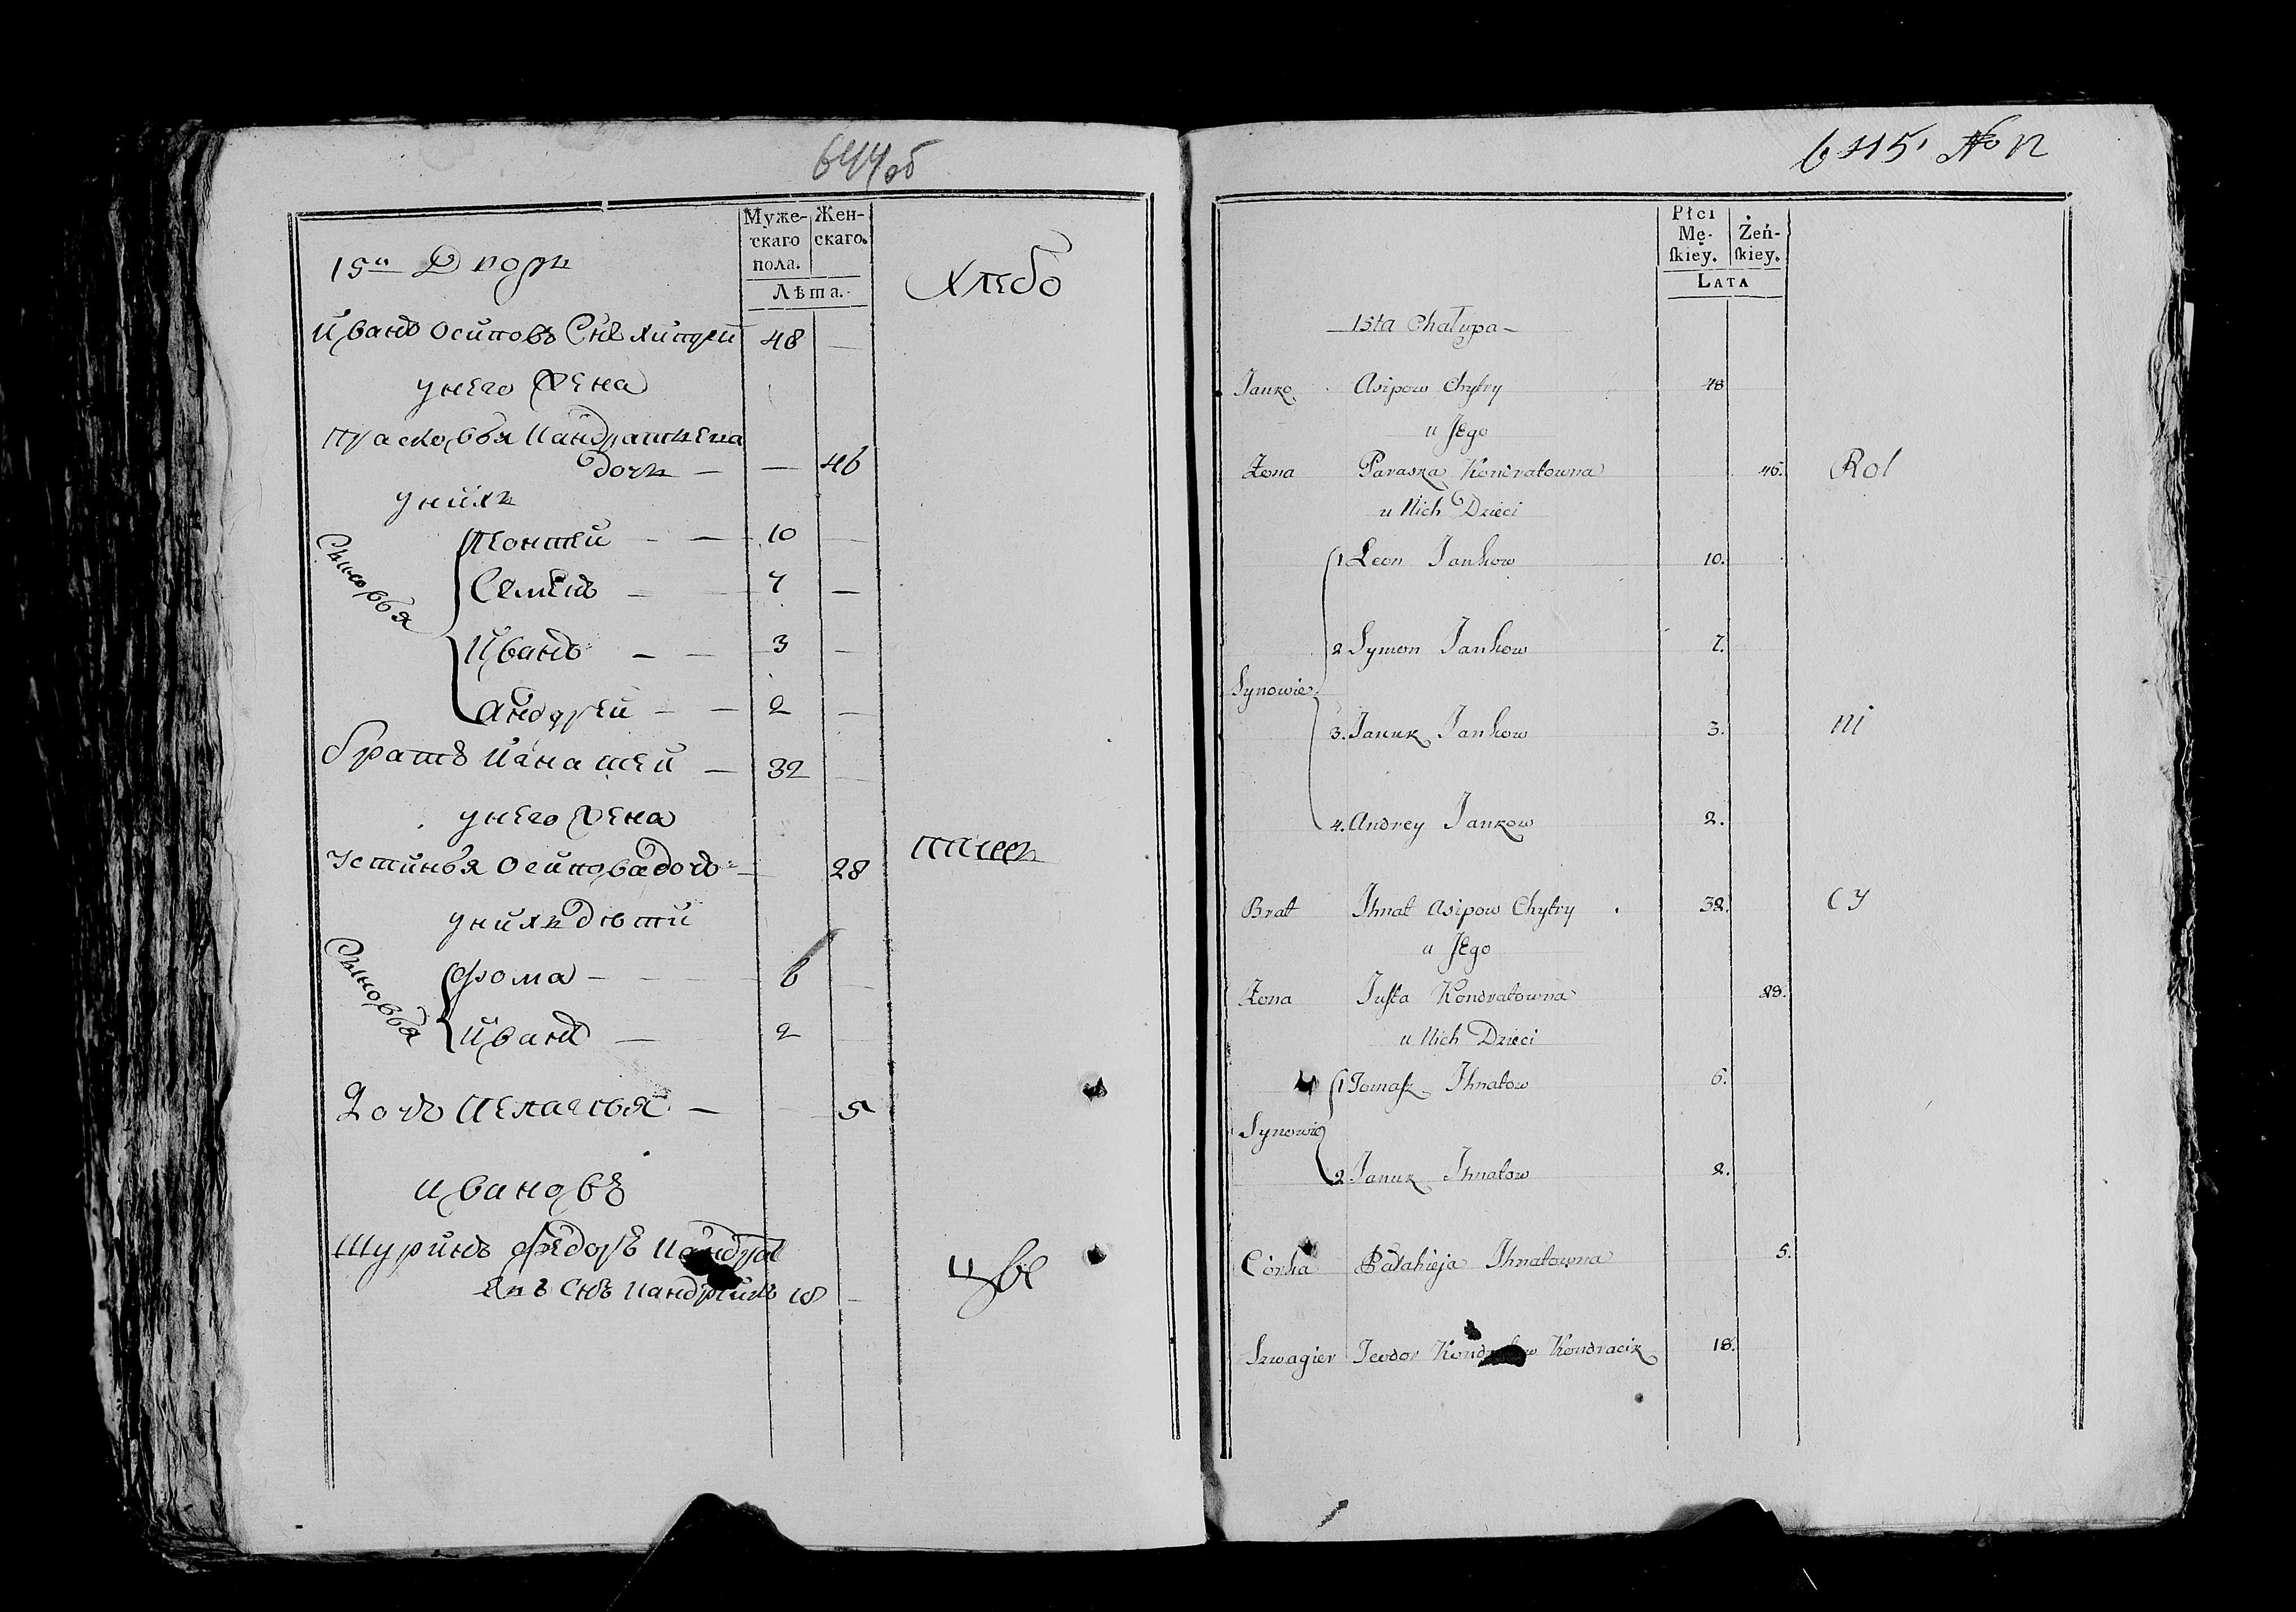 644об
Муже- Жен-
скаго скаго.
пола.
Лѣта.
15й Дворъ
Хлебо
Иванъ Осиповъ Снъ Хитрей 48 —
у него жена
Прасковья Кандратьева
дочь — — 46
у нихъ
Сыновья
Леонтей — — 10 —
Семенъ — — 7 —
Иванъ — — 3 —
Андрей — — 2 —
братъ Игнатей — 32 —
у него жена
Устинья Осипова дочь — 28
у нихъ дети
Сыновья
Фома — — 6 —
Иванъ — 2 —
Дочь Пелагѣя — 5
Ивановъ
Шуринъ Федоръ Кандрат
евъ Снъ 18 —
645 No 12
Płci
Mę- Żeń-
skiey. skiey.
Lata
15ta Chałupa
Janko Asipow Chytry 48
u Jego
Żona Paraska Kondratowna 46.
u Nich Dzieci
Rol
1 Leon Jankow 10.
2 Symon Jankow 7.
Synowie
3. Januk Jankow 3.
ni
4. Andrey Jankow 2.
Brat Ihnat Asipow Chytry 32.
cy
u Jego
Żona Justa Kondratowna 28.
u Nich Dzieci
1 Tomasz Ihnatow 6.
Synowie
2 Januk Ihnatow 2.
Córka Pałahieja Ihnatowna 5.
Szwagier Teodor Kondratow Kondracik 18.